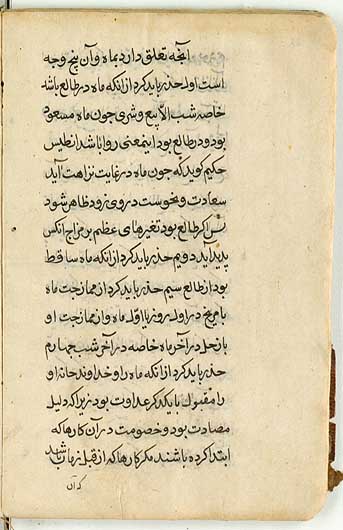 آنچه تعلق دارد بماه و آن پنج وجه
است اول حذر باید کرد از انکه ماه در طالع باشد
خاصه شب الا بیع و شری چون ماه مسعود
بود و در طالع بود اینمعنی روا باشد
حکیم کوید که چون ماه در غایت نزاهت آید
سعادت و نحوست در وی زود ظاهر شود
پس اگر طالع بود تغیرهای عظیم بر مزاج انکس
پدید آید دویم حذر باید کرد از انکه ماه ساقط
بود از طالع سیم حذر باید کرد از ممازجت ماه
با مریخ در اول روز یا اول ماه و از ممازجت او
با زحل در آخر ماه خاصه در آخر شب چهارم
حذر باید کرد از انکه ماه را و خداوند خانه او
را مقبول با یکدیگر عداوت بود زیرا که دلیل
مضادت بود و خصومت در آن کارها که
ابتدا کرده باشند مکر کارها که از قبل باشد
که آن